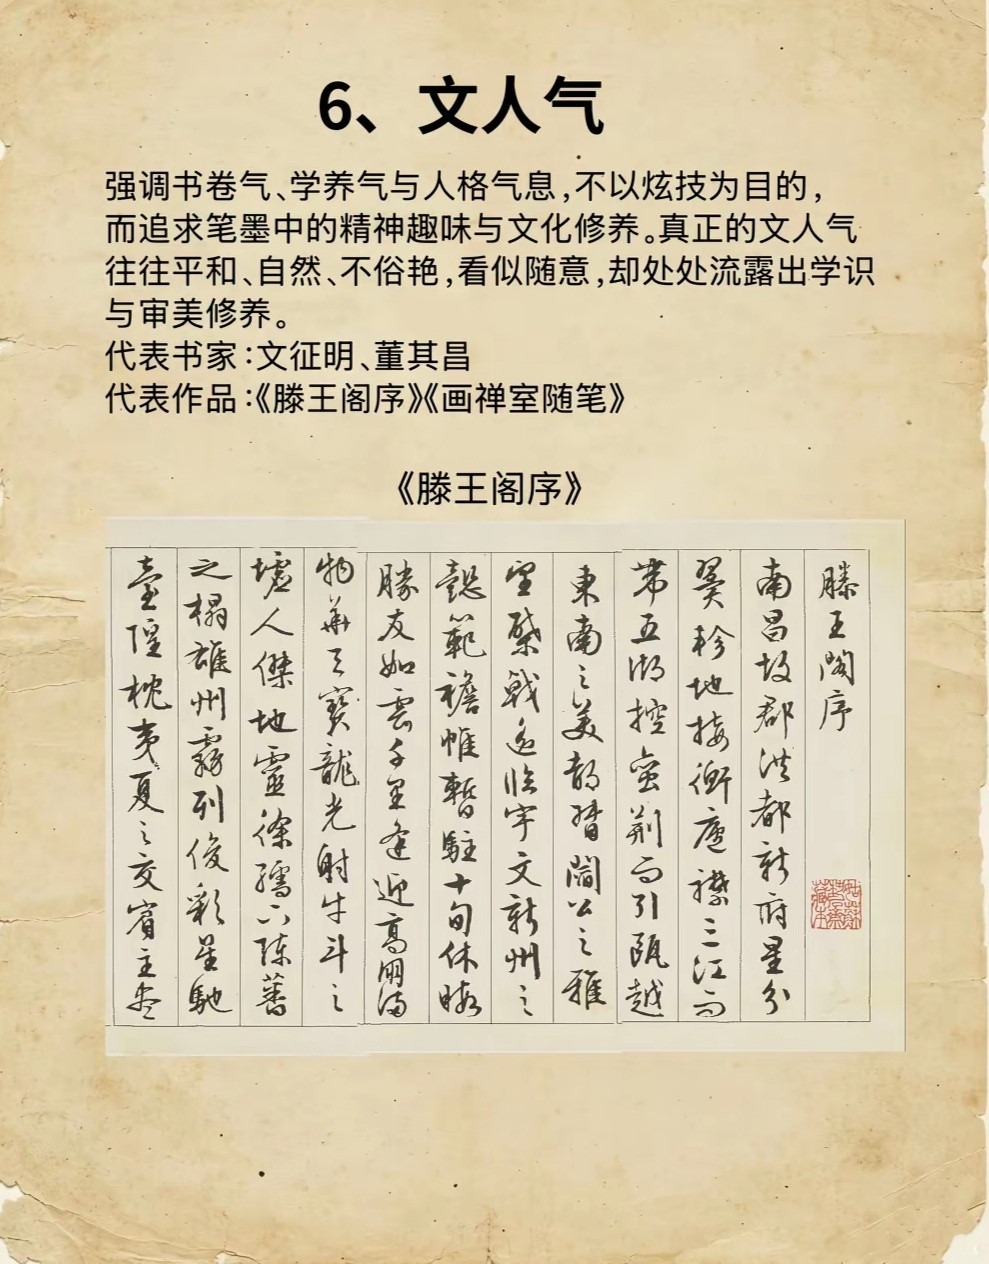 6、文人气
强调书卷气、学养气与人格气息,不以炫技为目的,
而追求笔墨中的精神趣味与文化修养。真正的文人气
往往平和、自然、不俗艳,看似随意,却处处流露出学识
与审美修养。
代表书家:文征明、董其昌
代表作品:《滕王阁序》《画禅室随笔》
《滕王阁序》
滕王閣序
南昌故郡洪都新府星分
翼軫地接衡廬襟三江而
帶五湖控蠻荆而引甌越
東南之美都督閻公之雅
望棨戟遙臨宇文新州之
懿範襜帷暫駐十旬休暇
勝友如雲千里逢迎高朋滿
物華天寶龍光射牛斗之
墟人傑地靈徐孺下陳蕃
之榻雄州霧列俊彩星馳
臺隍枕夷夏之交賓主盡